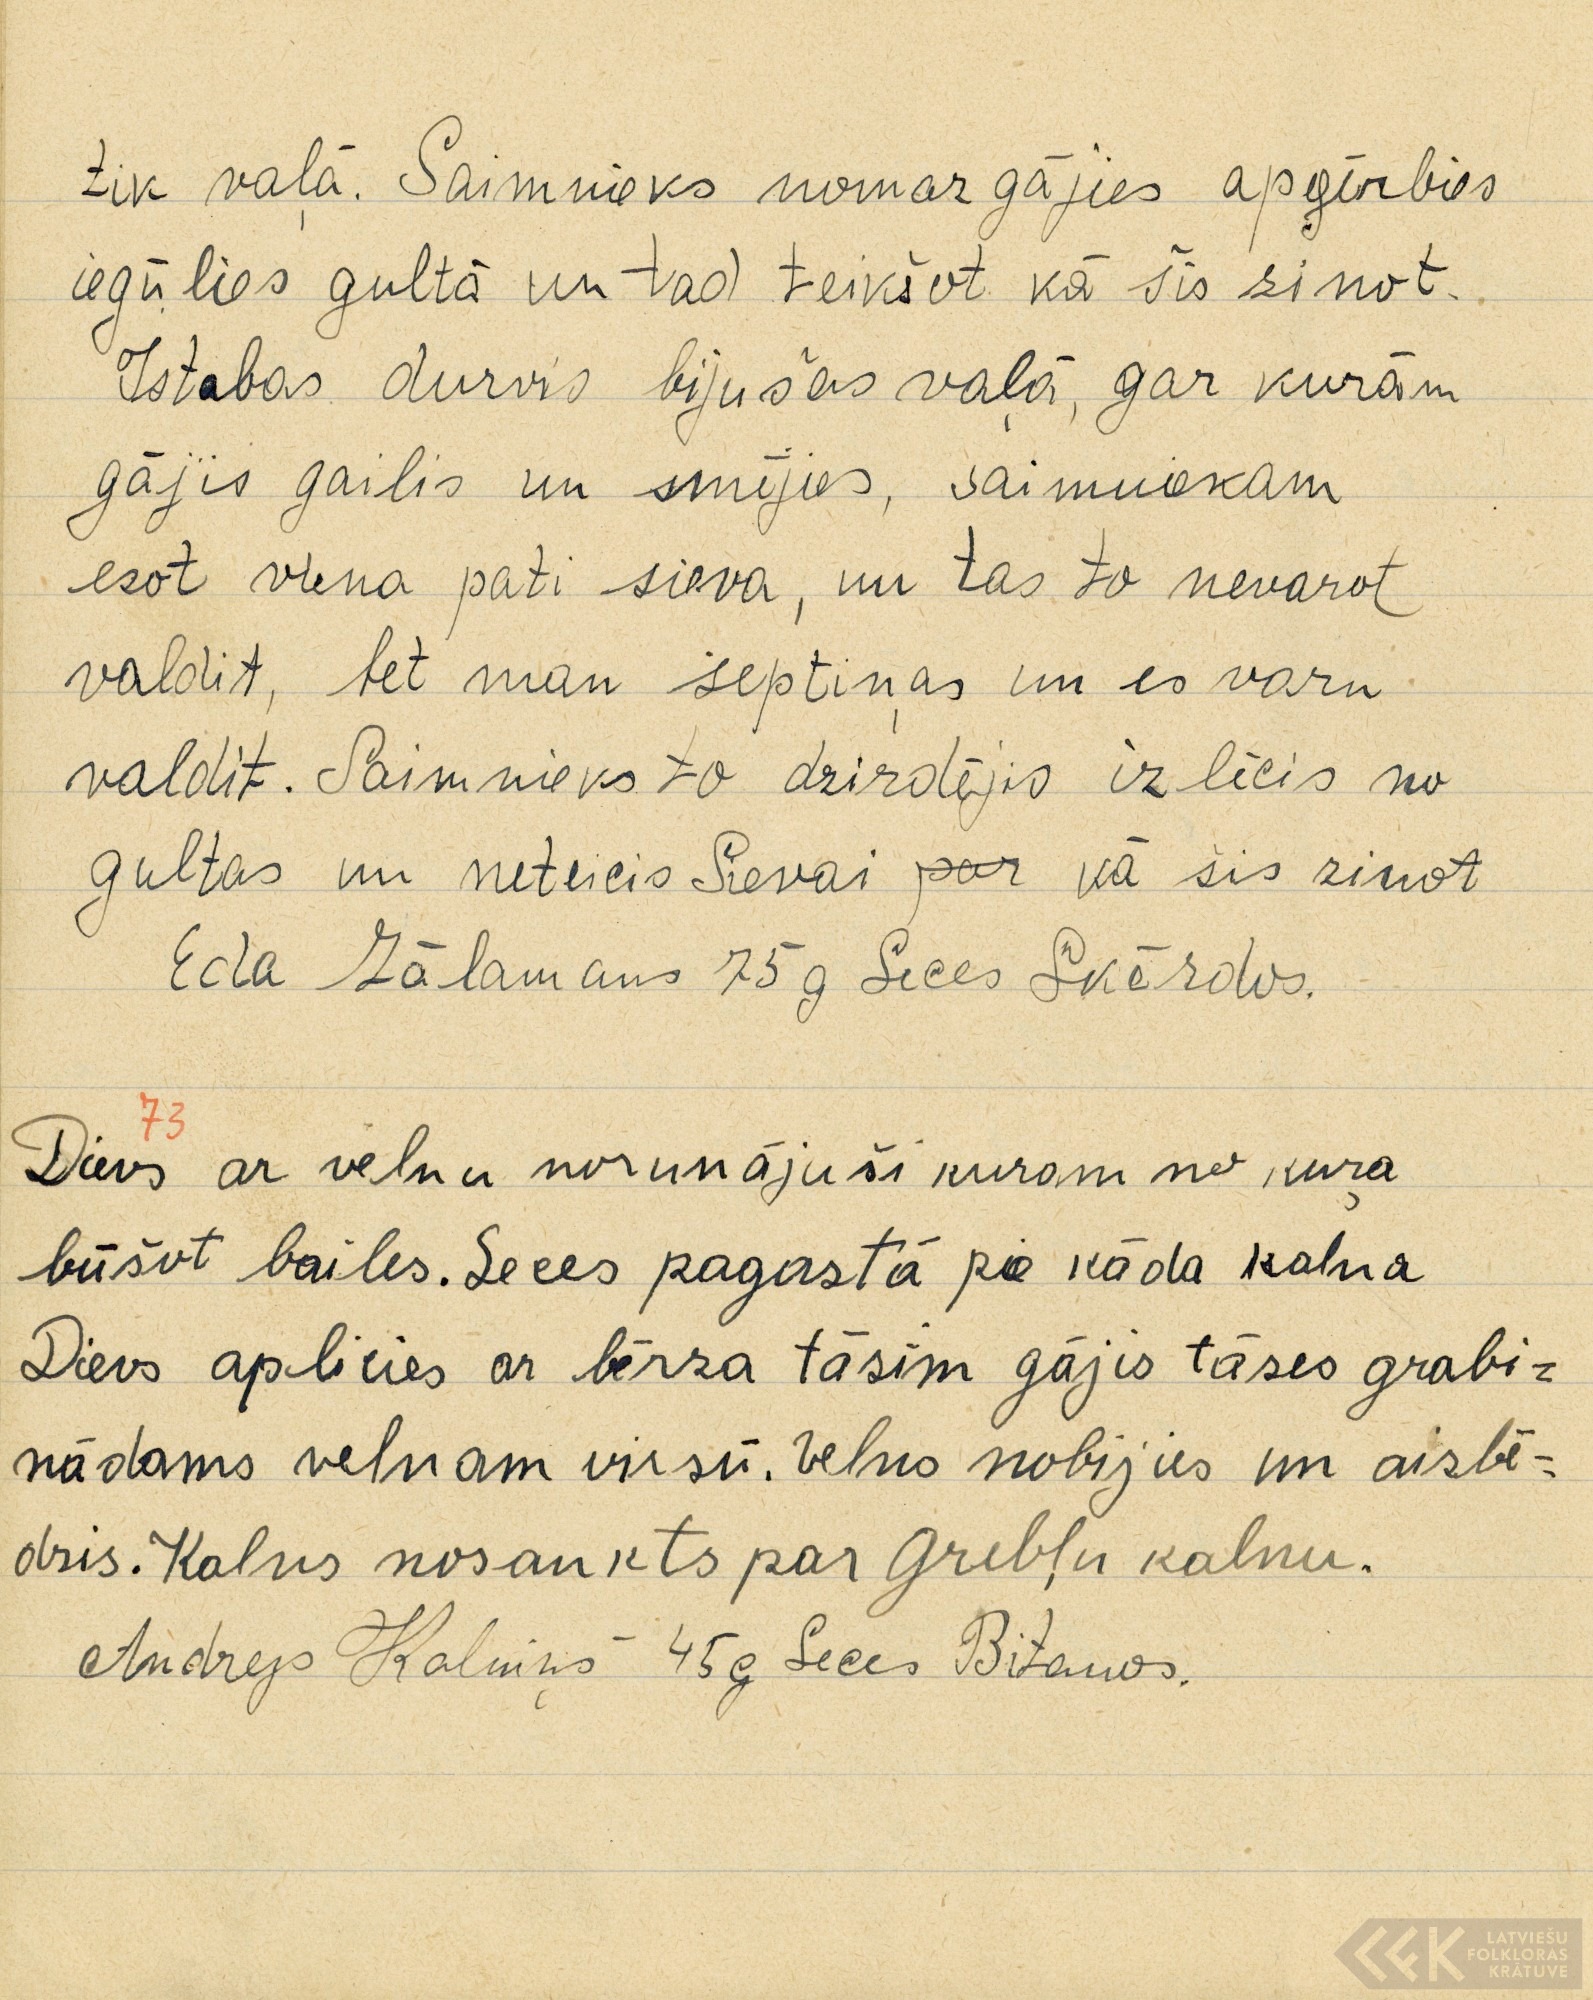 tik vaļā. Saimnieks nomazgājies apģērbies
iegūlies gultā un tad teikšot kā šis zinot.
Istabas durvis bijušas vaļā, gar kurām
gājis gailis un smējies, saimniekam
esot viena pati sieva, un tas to nevarot
valdit, bet man septiņas un es varu
valdit. Saimnieks to dzirdējis izlēcis no
gultas un neteicis Sievai par kā šis zinot
Eda Zālamans 75 g Seces Skērdos.
73
Dievs ar velnu norunājuši kuram no kuŗa
būšot bailes. Seces pagastā pie kāda kalna
Dievs aplicies ar bērza tāsīm gājis tāses grabi=
nādams velnam virsū. Velns nobijies un aizbē=
dzis. Kalns nosaukts par Grebļu kalnu.
Andrejs Kalniņš 45 g Seces Bitanos.
LATVIEŠU
FOLKLORAS
KRĀTUVE